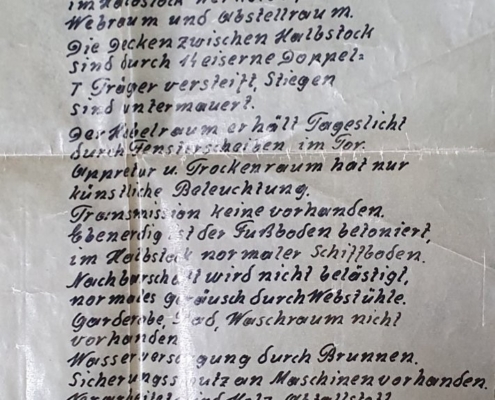 im Halbstock
Webraum und Abstellraum.
Die Decken zwischen Halbstock
sind durch 14 eiserne Doppel=
T Träger versteift, Stiegen
sind untermauert.
Der Hobelraum erhält Tageslicht
durch Fensterscheiben im Tor.
Appretur u. Trockenraum hat nur
künstliche Beleuchtung.
Transmission keine vorhanden.
Ebenerdig ist der Fußboden betoniert,
im Halbstock normaler Schiffboden.
Nachbarschaft wird nicht belästigt,
normales Geräusch durch Webstühle.
Garderobe, Bad, Waschraum nicht
vorhanden.
Wasserversorgung durch Brunnen.
Sicherungsschutz an Maschinen vorhanden.
Holz